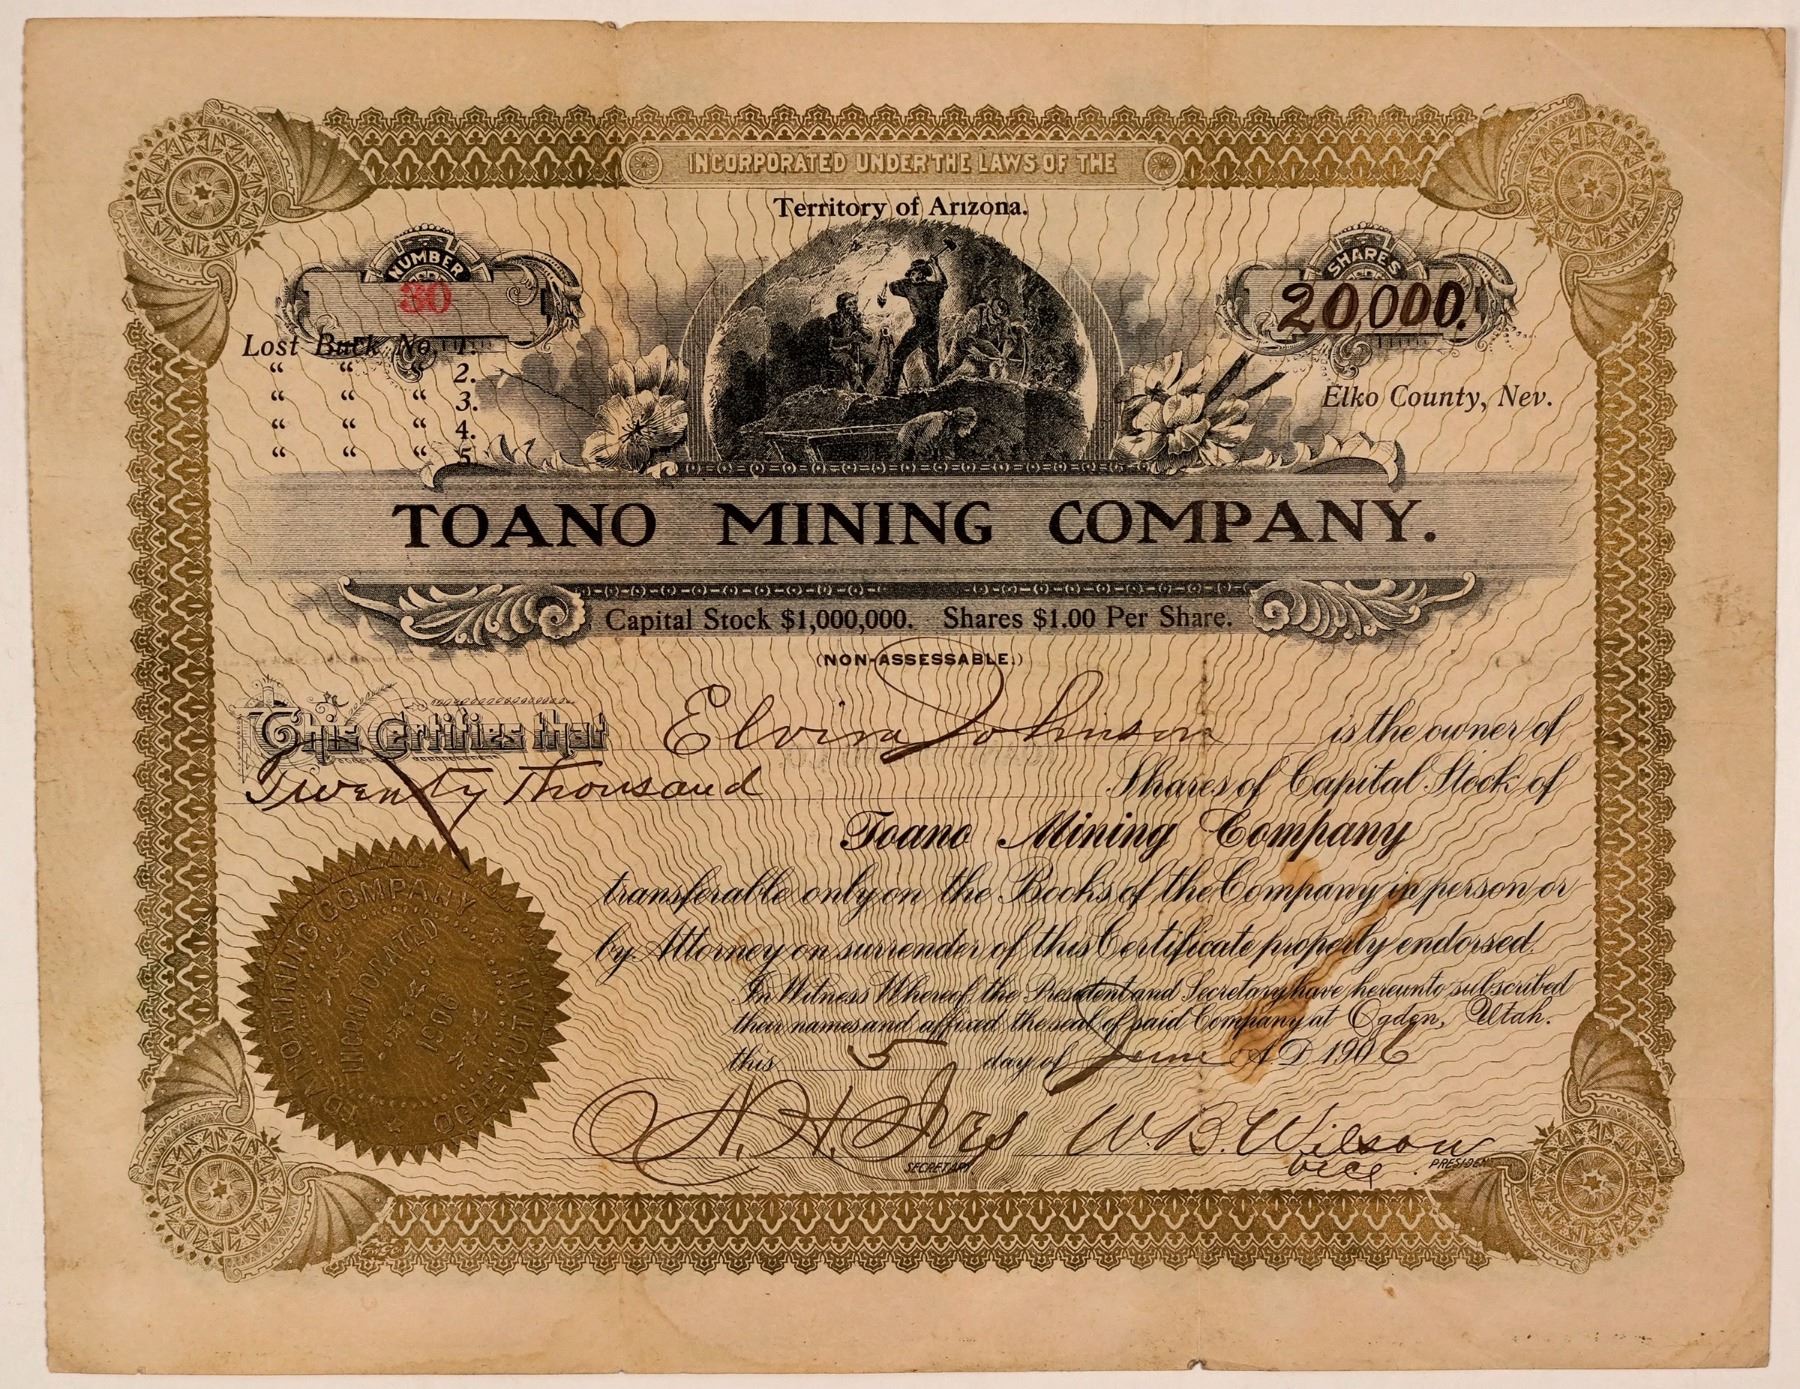 INCORPORATED UNDER THE LAWS OF THE
Territory of Arizona.
NUMBER
30
SHARES
20,000.
Lost Buck No. 1.
“ “ “ 2.
“ “ “ 3.
“ “ “ 4.
“ “ “ 5.
Elko County, Nev.
TOANO MINING COMPANY.
Capital Stock $1,000,000. Shares $1.00 Per Share.
(NON-ASSESSABLE.)
This Certifies that Elvira Johnson is the owner of
Twenty Thousand Shares of Capital Stock of
Toano Mining Company
transferable only on the Books of the Company in person or
by Attorney on surrender of this Certificate properly endorsed.
In Witness Whereof, the President and Secretary have hereunto subscribed
their names and affixed the seal of said Company at Ogden, Utah.
this 5 day of June A.D. 1906
MINING COMPANY
OGDEN, UTAH
INCORPORATED
1906
N. H. Ives
SECRETARY
W. B. Wilson
Vice PRESIDENT